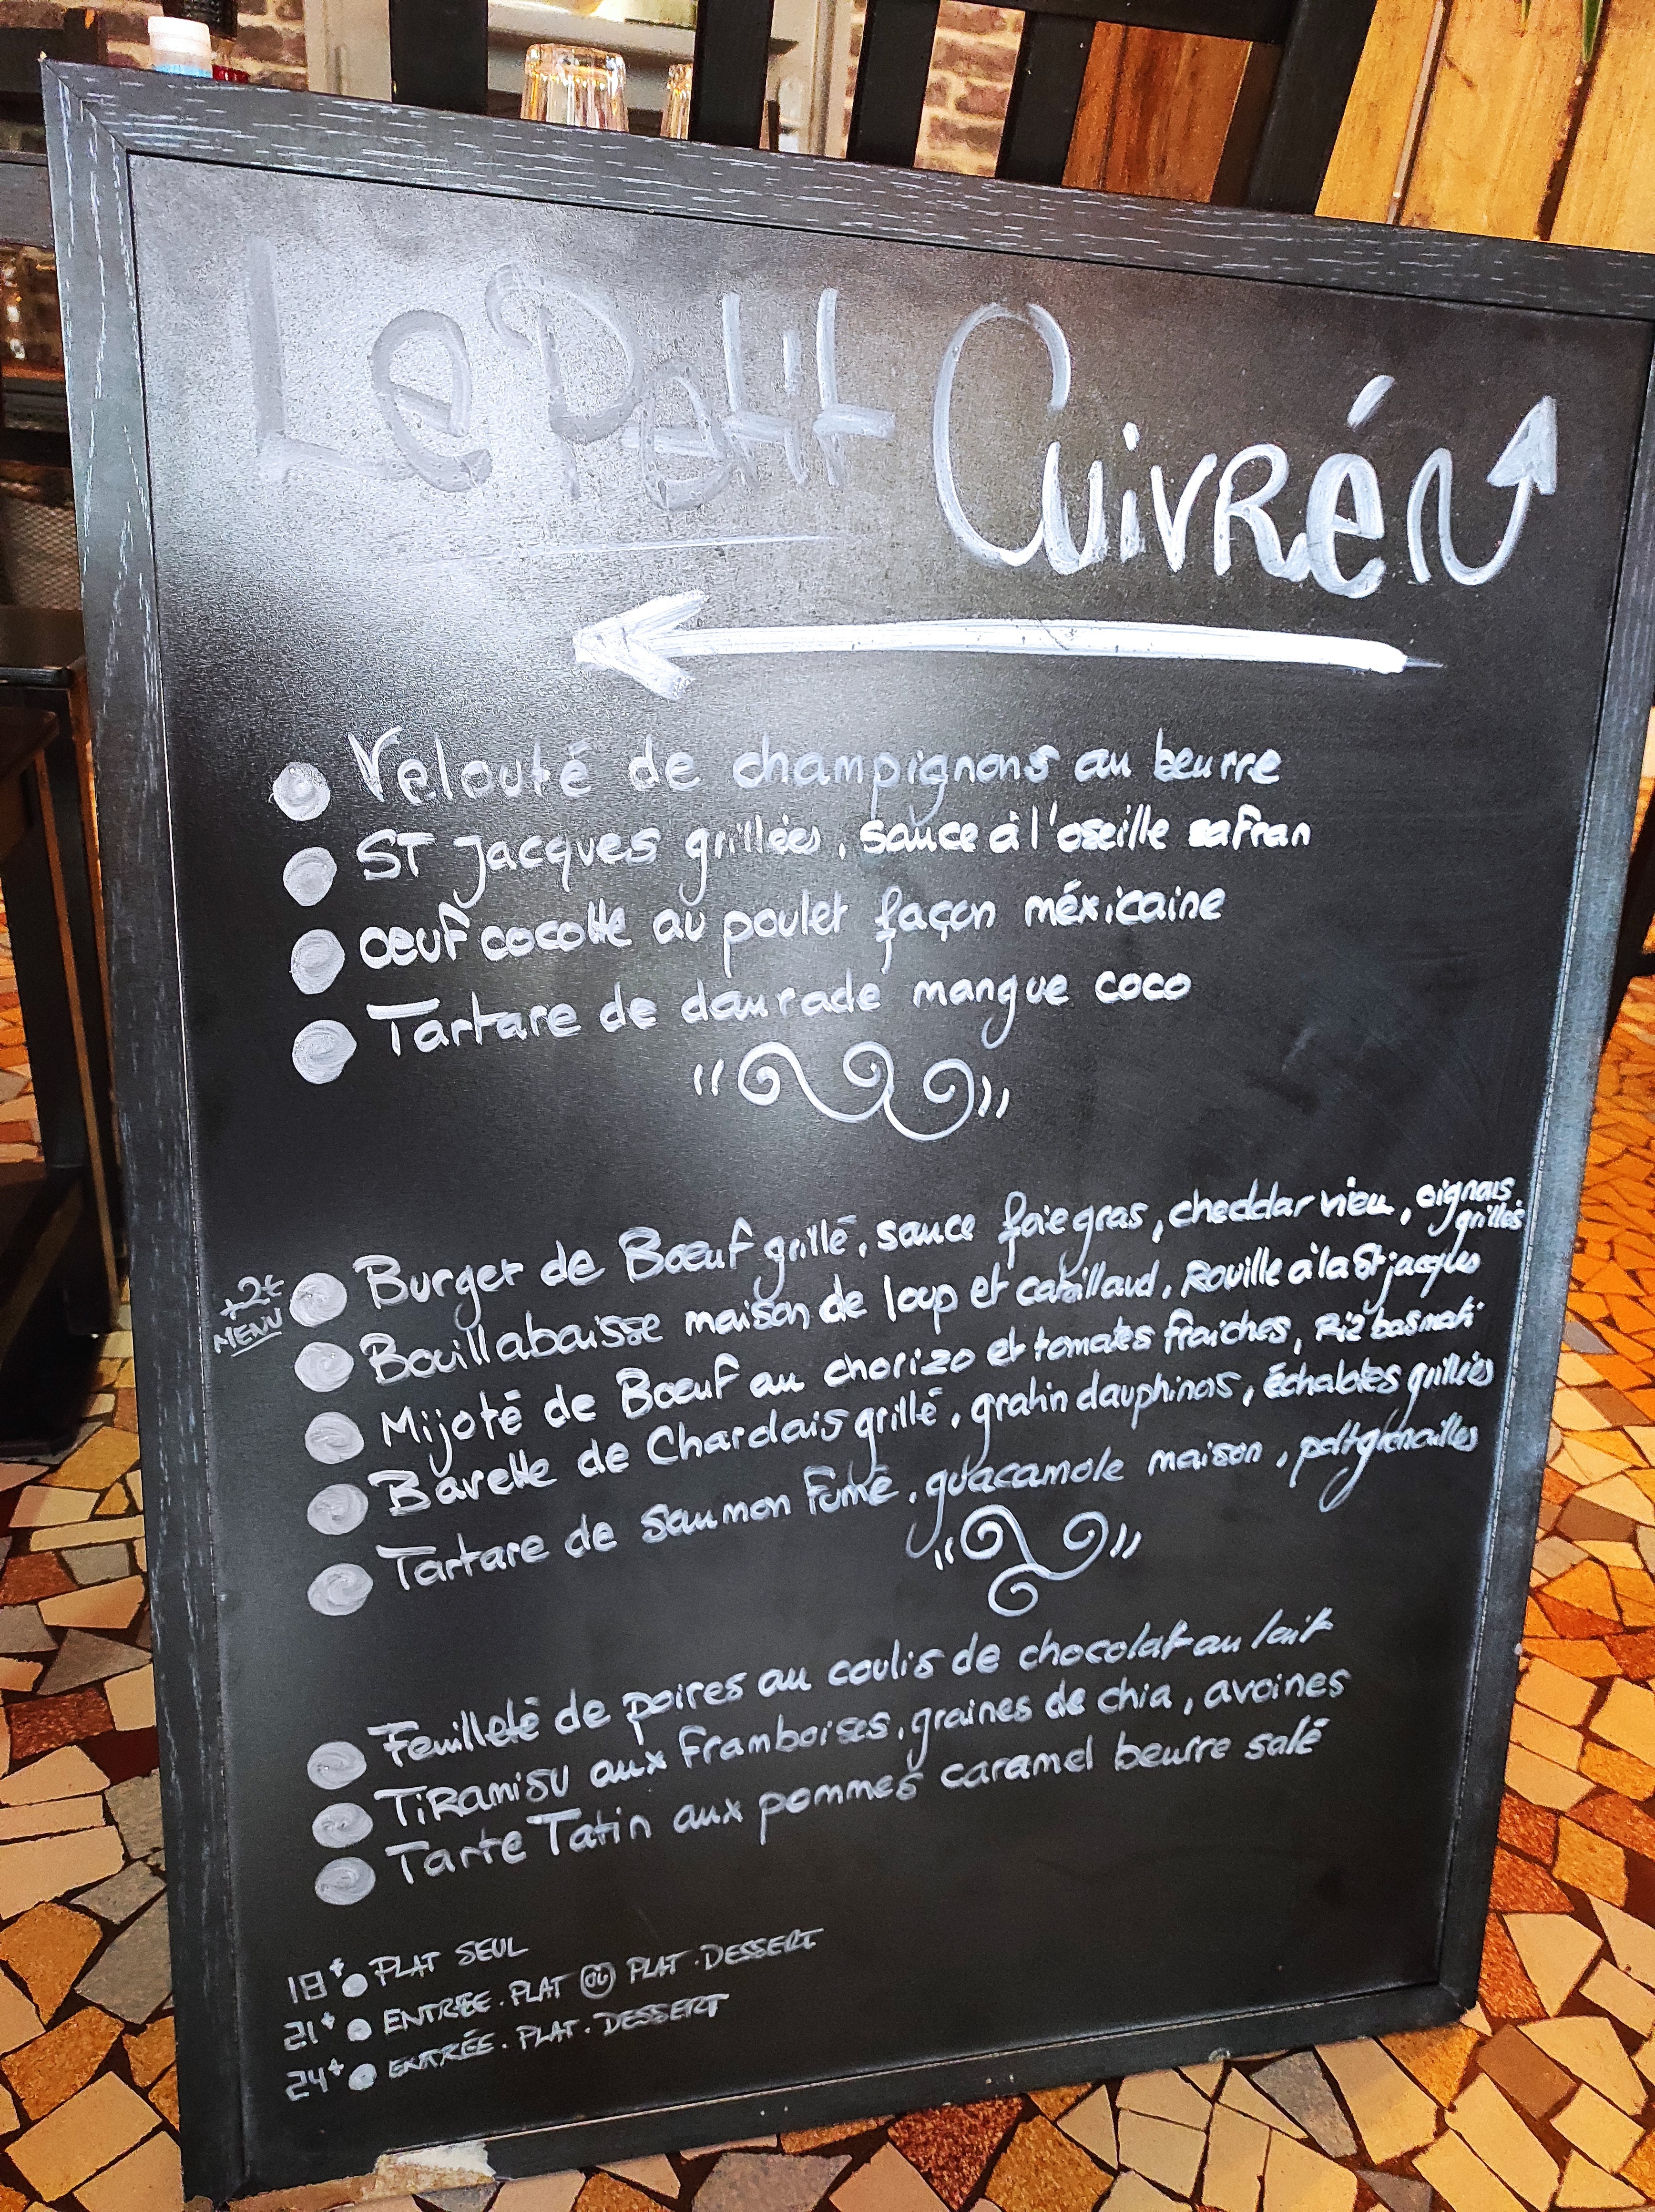 Le Petit Cuivré
Velouté de champignons au beurre
ST Jacques grillées, sauce à l'oseille safran
Oeuf cocotte au poulet façon méxicaine
Tartare de daurade mangue coco
Burger de Boeuf grillé, sauce foie gras, cheddar vieu, oignons
grillés
+2€
MENU
Bouillabaisse maison de loup et cabillaud, Rouille à la St jacques
Mijoté de Boeuf au chorizo et tomates fraiches, Riz basmati
Bavette de Charolais grillé, gratin dauphinois, échalotes grillées
Tartare de saumon fumé, guacamole maison, petit grenailles
Feuilleté de poires au coulis de chocolat au lait
TiRamisu aux framboises, graines de chia, avoines
Tarte Tatin aux pommes caramel beurre salé
18€ PLAT SEUL
21€ ENTRÉE. PLAT OU PLAT. DESSERT
24€ ENTRÉE. PLAT. DESSERT